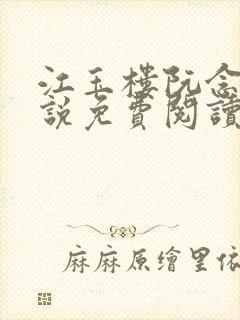 江玉樓阮念
說免費閱讀
麻麻原繪里依